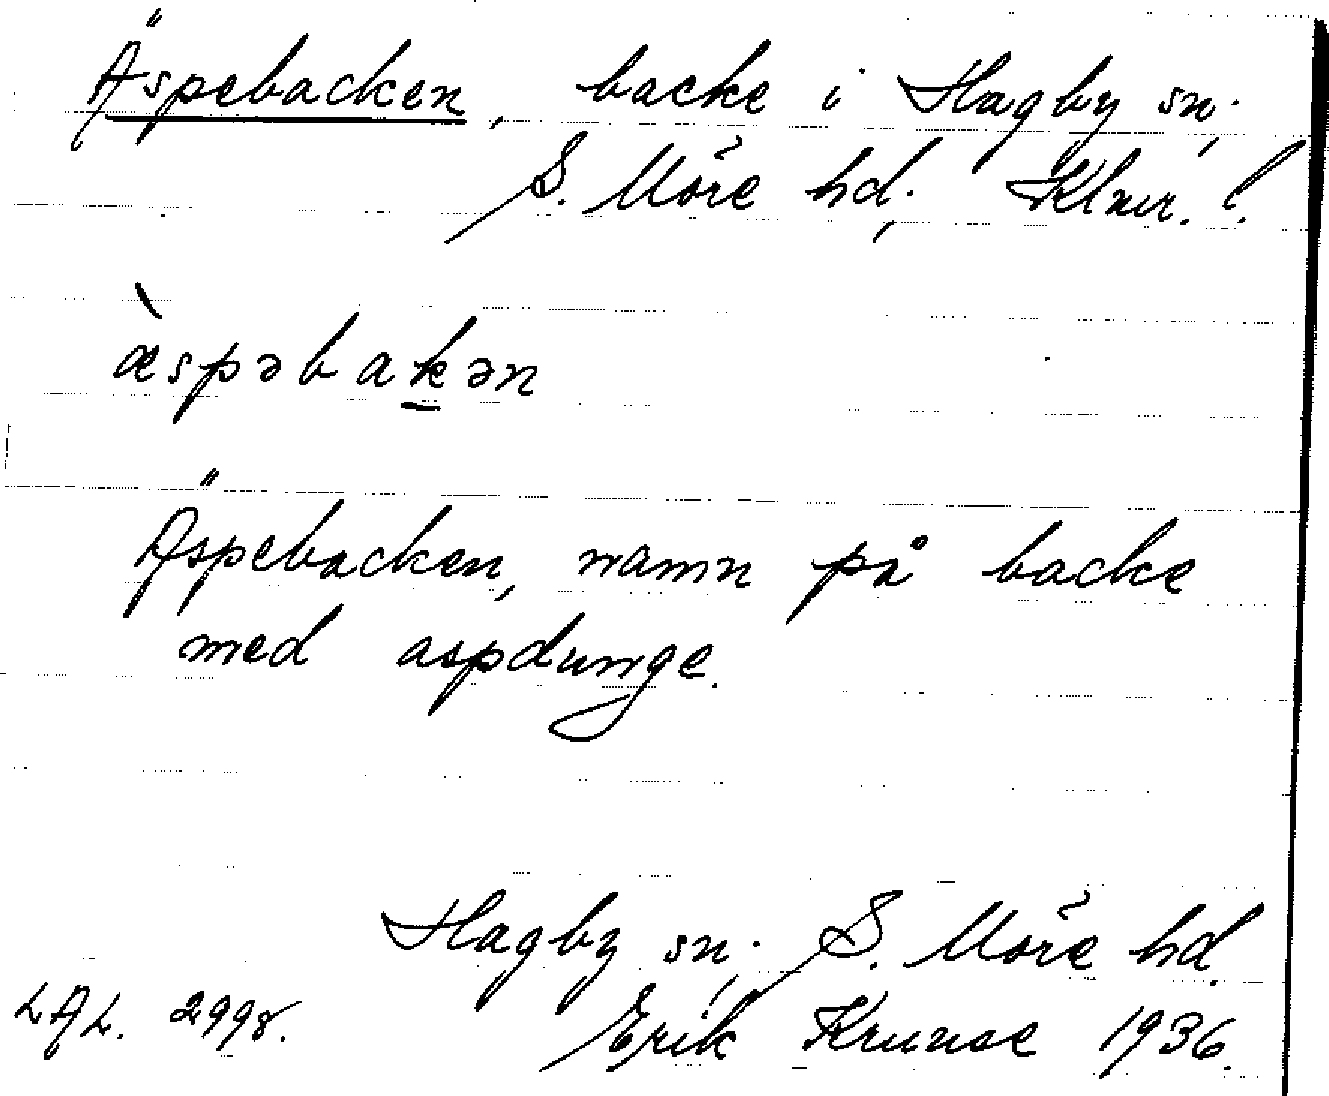 Äspebacken, backe i Hagby sn;
S. Möre hd; Klmr. l.
æ̀spəbak̲ən
Äspebacken, namn på backe
med aspdunge.
Hagby sn; S. Möre hd.
LAL. 2998. Erik Krunse 1936.